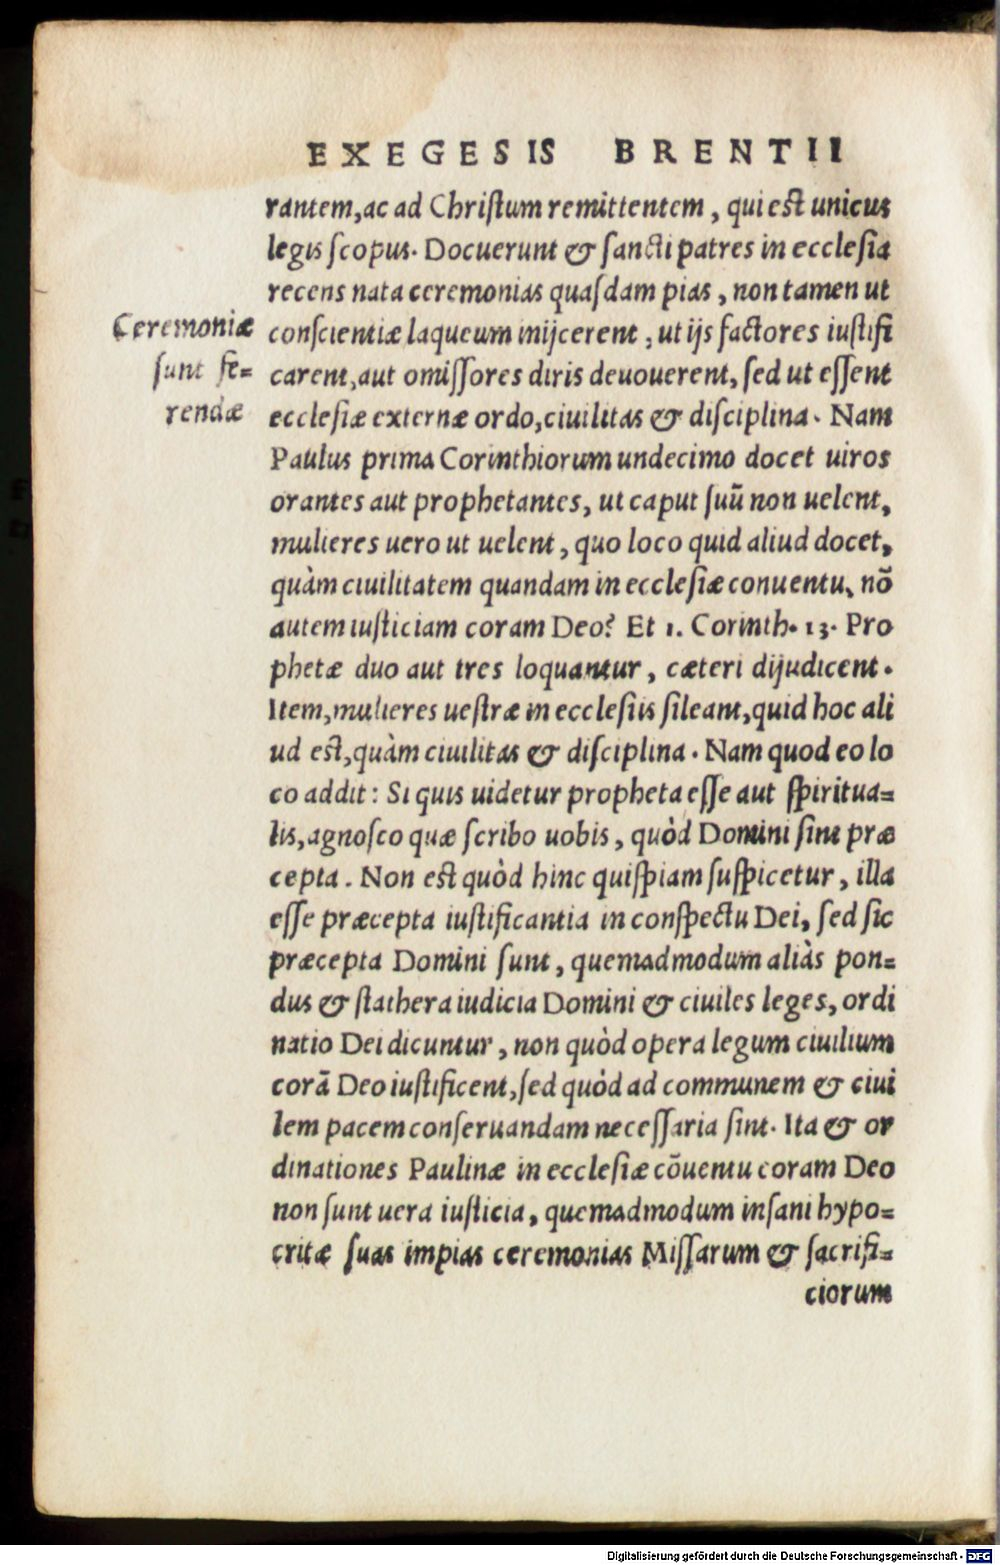 EXEGESIS BRENTII
rantem, ac ad Christum remittentem, qui est unicus
legis scopus. Docuerunt & sancti patres in ecclesia
recens nata ceremonias quasdam pias, non tamen ut
Ceremoniæ
sunt fe=
rendæ
conscientiæ laqueum inijcerent, ut ijs factores iustifi
carent, aut omissores diris deuouerent, sed ut essent
ecclesiæ externæ ordo, ciuilitas & disciplina. Nam
Paulus prima Corinthiorum undecimo docet uiros
orantes aut prophetantes, ut caput suũ non uelent,
mulieres uero ut uelent, quo loco quid aliud docet,
quàm ciuilitatem quandam in ecclesiæ conuentu, nõ
autem iusticiam coram Deo? Et 1. Corinth. 13. Pro
phetæ duo aut tres loquantur, cæteri dijudicent.
Item, mulieres uestræ in ecclesiis sileant, quid hoc ali
ud est, quàm ciuilitas & disciplina. Nam quod eo lo
co addit: Si quis uidetur propheta esse aut spiritua=
lis, agnosco quæ scribo uobis, quòd Domini sint præ
cepta. Non est quòd hinc quispiam suspicetur, illa
esse præcepta iustificantia in conspectu Dei, sed sic
præcepta Domini sunt, quemadmodum aliàs pon=
dus & stathera iudicia Domini & ciuiles leges, ordi
natio Dei dicuntur, non quòd opera legum ciuilium
corã Deo iustificent, sed quòd ad communem & ciui
lem pacem conseruandam necessaria sint. Ita & or
dinationes Paulinæ in ecclesiæ cõuentu coram Deo
non sunt uera iusticia, quemadmodum insani hypo=
critæ suas impias ceremonias Missarum & sacrifi=
ciorum
Digitalisierung gefördert durch die Deutsche Forschungsgemeinschaft - DFG